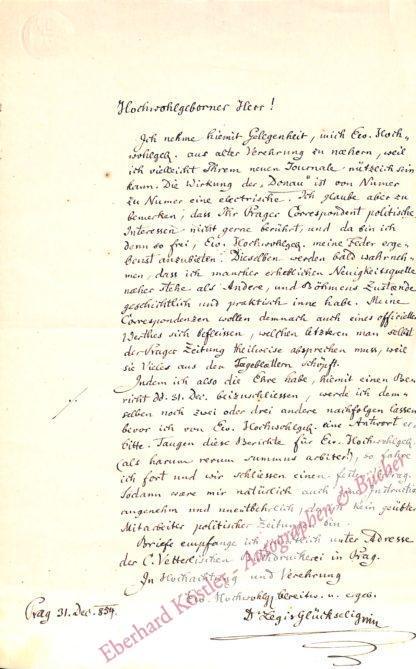 Hochwohlgeborner Herr!
Ich nehme hiemit Gelegenheit, mich Ew. Hoch-
wohlgeb. aus alter Verehrung zu næhern, weil
ich vielleicht Ihrem neuen Journale nützlich sein
kann. Die Wirkung der „Donau“ ist von Numer
zu Numer eine electrische. Ich glaube aber zu
bemerken, dass Ihr Prager Correspondent politische
Interessen nicht gerne berührt, und da bin ich
denn so frei, Ew. Hochwohlgeb. meine Feder erge-
benst anzubieten. Dieselben werden bald wahrneh-
men, dass ich mancher erheblichen Neuigkeitsquelle
næher stehe als Andere, und Böhmens Zustænde
geschichtlich und praktisch inne habe. Meine
Correspondenzen wollen demnach auch eines officiellen
Werthes sich befleissen, welchen letzteren man selbst
der Prager Zeitung theilweise absprechen muss, weil
sie Vieles aus den Tageblættern schöpft.
Indem ich also die Ehre habe, hiemit einen Be-
richt dd. 31. Dec. beizuschliessen, werde ich dem-
selben noch zwei oder drei andere nachfolgen lassen
bevor ich von Ew. Hochwohlgeb. eine Antwort er-
bitte. Taugen diese Berichte für Ew. Hochwohlgeb.
(als harum rerum summus arbiter!), so fahre
ich fort und wir schliessen einen
Sodann wäre mir natürlich auch
angenehm und unentbehrlich, kein geübter
Mitarbeiter politischer Zeitungen bin.
Briefe empfange ich unter Adresse
der C. Vetterl'schen Buchdruckerei in Prag.
In Hochachtung und Verehrung
Ew. Hochwohlgeb. bereitw. u. ergeb.
Prag 31. Dec. 854. Dr Legis Glückselig
Eberhard Köstler Autographen & Bücher